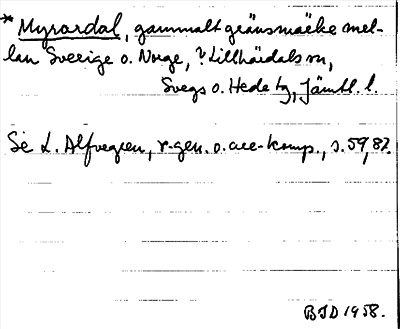 * Myrardal, gammalt gränsmärke mel-
lan Sverige o. Norge, ? Lillhärdals sn,
Svegs o. Hede tg, Jämtl. l.
Se L. Alfvegren, r-gen. o. acc-komp., s. 59, 82.
BJD 1958.